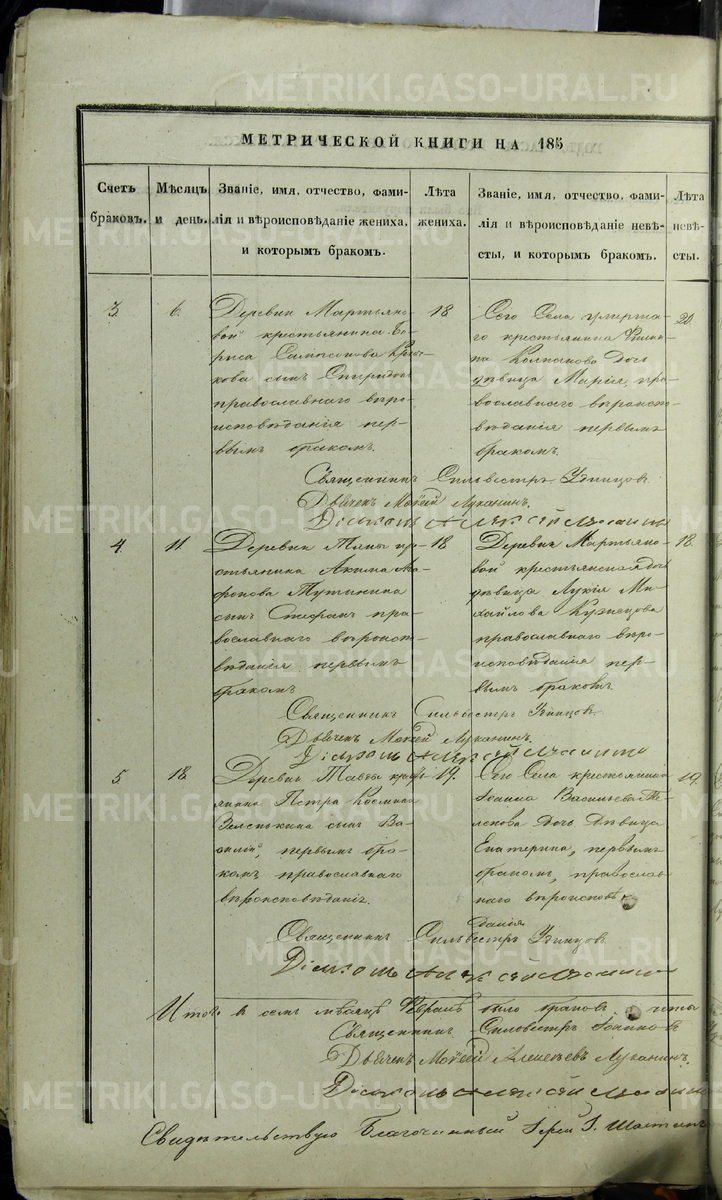 МЕТРИЧЕСКОЙ КНИГИ НА 185
Счетъ браковъ.
Мѣсяцъ и день.
Званіе, имя, отчество, фами-
лія и вѣроисповѣданіе жениха,
и которымъ бракомъ.
Лѣта жениха.
Званіе, имя, отчество, фами-
лія и вѣроисповѣданіе невѣ-
сты, и которымъ бракомъ.
Лѣта невѣ-
сты.
3.
6.
Деревни Мартьяно-
вой крестьянина Бо-
риса Самсонова
сынъ Спиридонъ
православнаго вѣро-
исповѣданія пер-
вымъ бракомъ.
18
Сего Села умерша-
го крестьянина Филип-
па дочь
дѣвица Марія, пра-
вославнаго вѣроиспо-
вѣданія первымъ
бракомъ.
20
Священникъ Сильвестръ Удинцовъ
Дьячекъ Мокей Луканинъ.
Діаконъ Алексей
4.
11.
Деревни кре-
стьянина Акима
сынъ Стефанъ пра-
вославнаго вѣроиспо-
вѣданія первымъ
бракомъ
18
Деревни Мартьяно-
вой крестьянская дочь
дѣвица Лукія Ми-
хайлова Кузнецова
православнаго вѣро-
исповѣданія пер-
вымъ бракомъ.
18.
Священникъ Сильвестръ Удинцовъ
Дьячекъ Мокей Луканинъ.
Діаконъ Алексей
5
18.
Деревни кресть-
янина Петра Космина
Зеленькина сынъ Ва-
силій, первымъ бра-
комъ православнаго
вѣроисповѣданія.
19.
Сего Села крестьянина
Іоанна Васильева
дочь дѣвица
Екатерина, первымъ
бракомъ, православ-
наго вѣроисповѣ-
данія
19.
Священникъ Сильвестръ Удинцовъ
Діаконъ Алексей
Итого въ семъ мѣсяцѣ Февралѣ было браковъ
Священникъ Сильвестръ Удинцовъ
Дьячекъ Мокей Алексеевъ Луканинъ.
Діаконъ Алексей
Свидѣтельствую Благочинный Іерей І.
METRIKI.GASO-URAL.RU